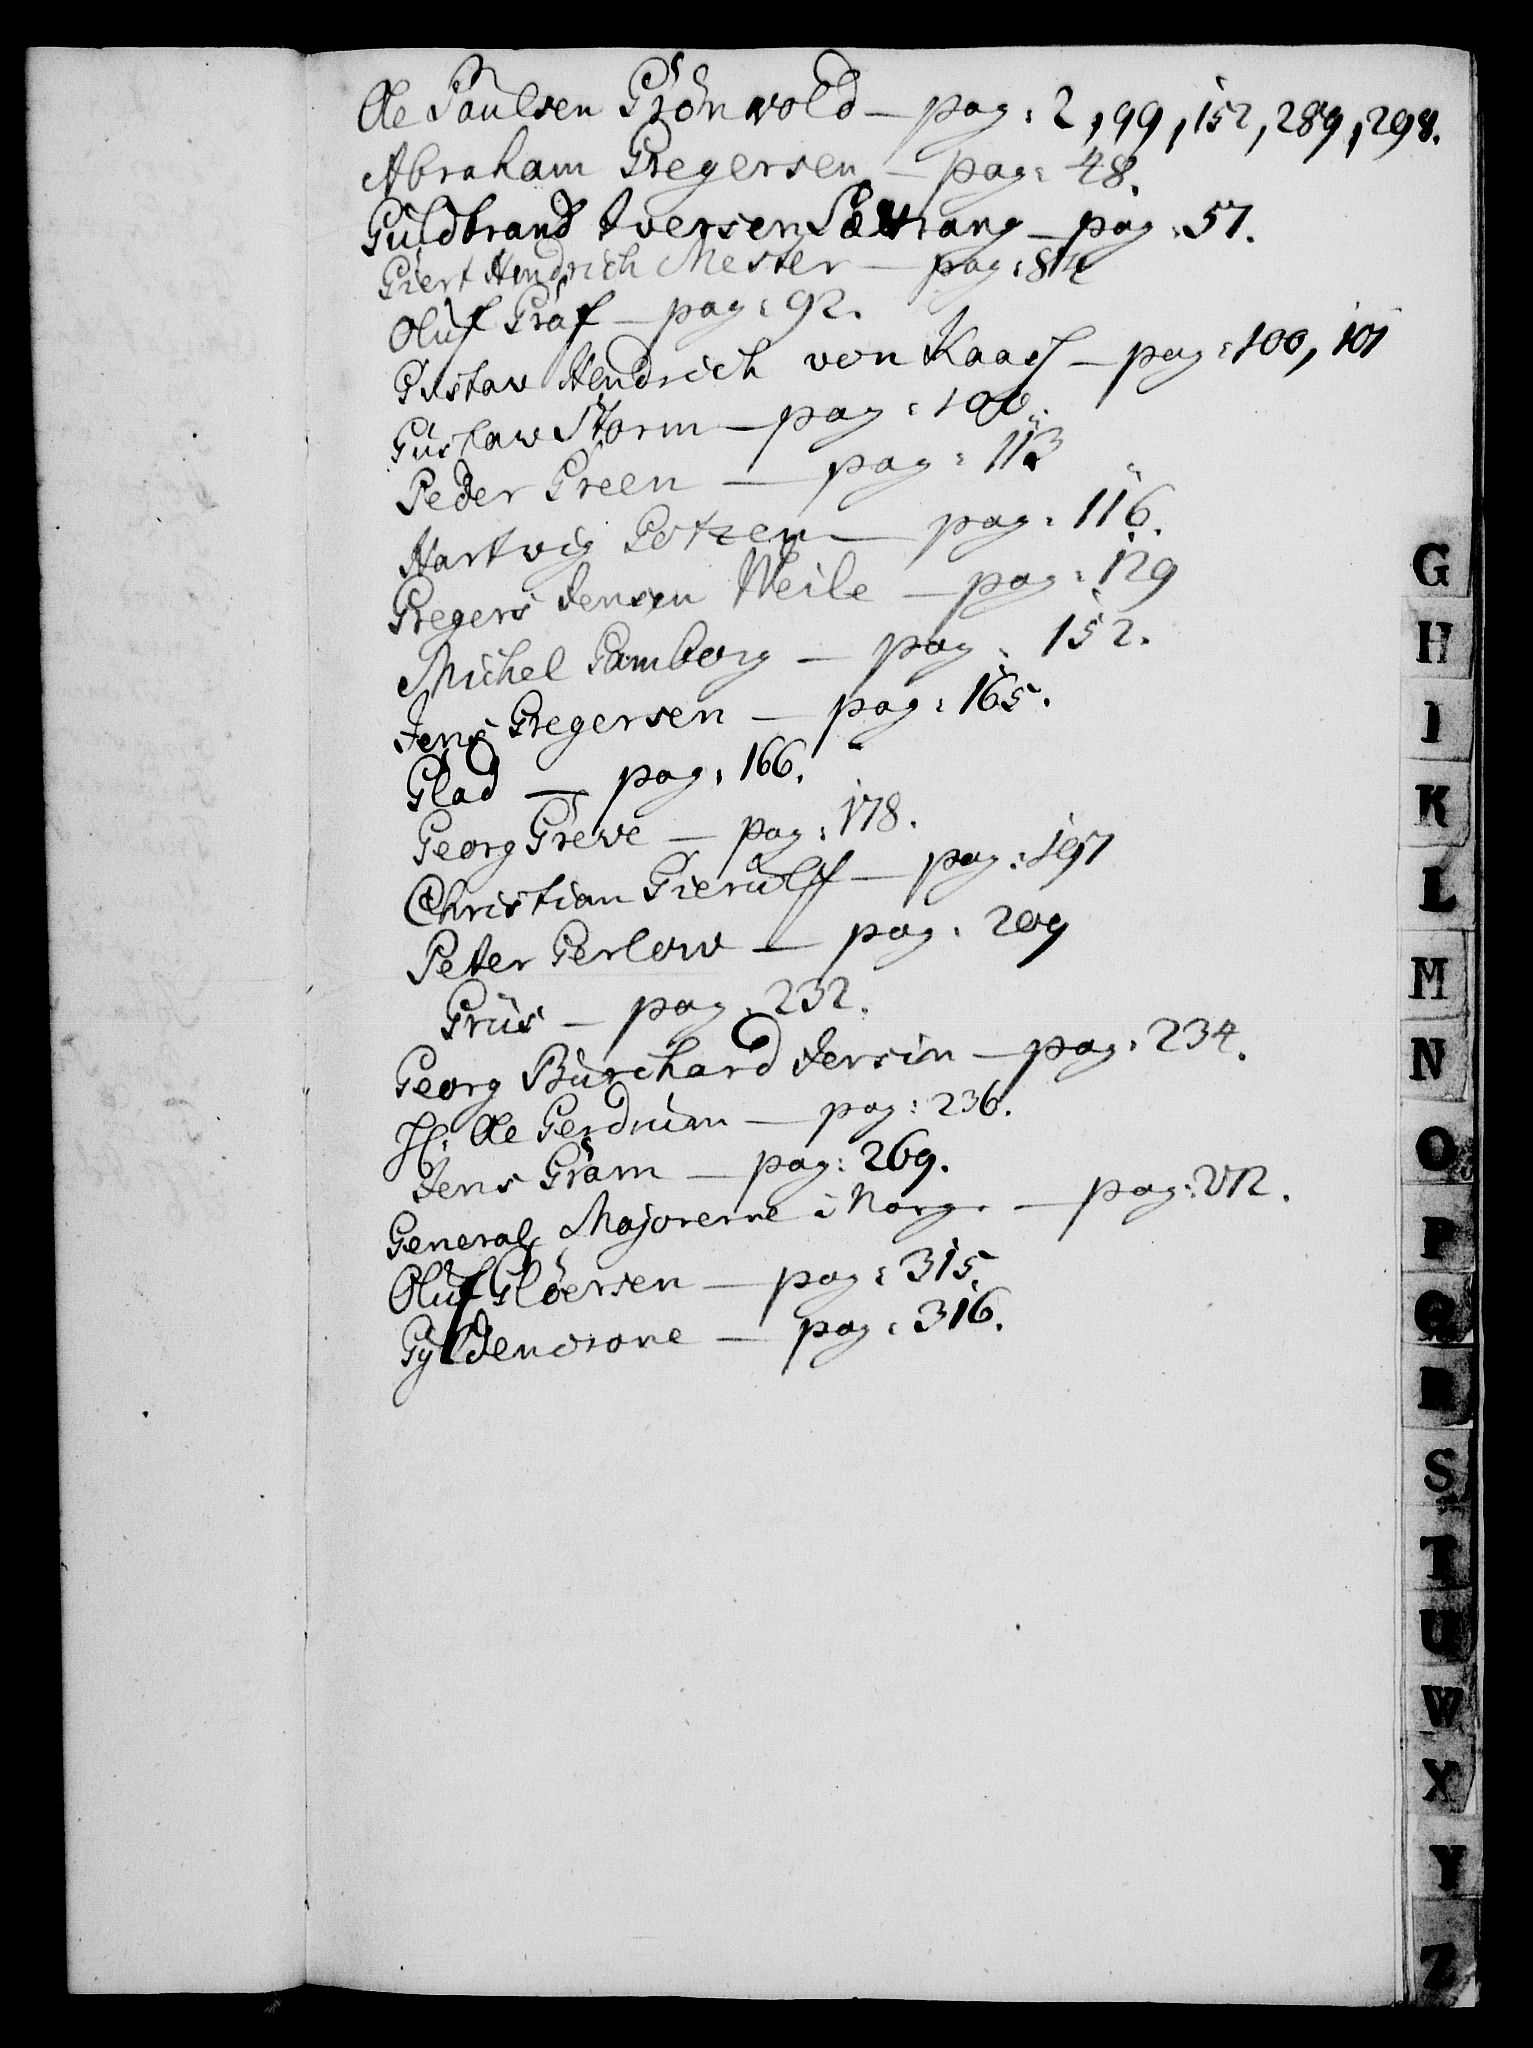 Ole Paulsen Grönwold — pag: 2, 99, 152, 289, 298.
Abraham Gregersen — pag: 48.
Guldbrand Iversen Sætrang — pag: 57.
Giert Hendrich Mester — pag: 84
Oluf Graf — pag: 92.
Gustav Hendrich von Kaas — pag: 100, 101
Gustaw Storm — pag: 100.
Peder Green — pag: 113
Hartvig Gotzen — pag: 116.
Gregers Jensen Weile — pag: 129
Michel Gamborg — pag: 152.
Jens Gregersen — pag: 165.
Glad — pag: 166.
Georg Greve — pag: 178.
Christian Gierulff — pag: 197
Peter Gerlow — pag: 209
Grüs — pag: 232.
Georg Burchard Jersin — pag: 234.
H: Ole Gerdrum — pag: 236.
Jens Gram — pag: 269.
General Majorerne i Norge — pag:
Oluf Glöersen — pag: 315.
Gyldencrone — pag: 316.
G
H
I
K
L
M
N
O
P
Q
R
S
T
U
W
X
Y
Z